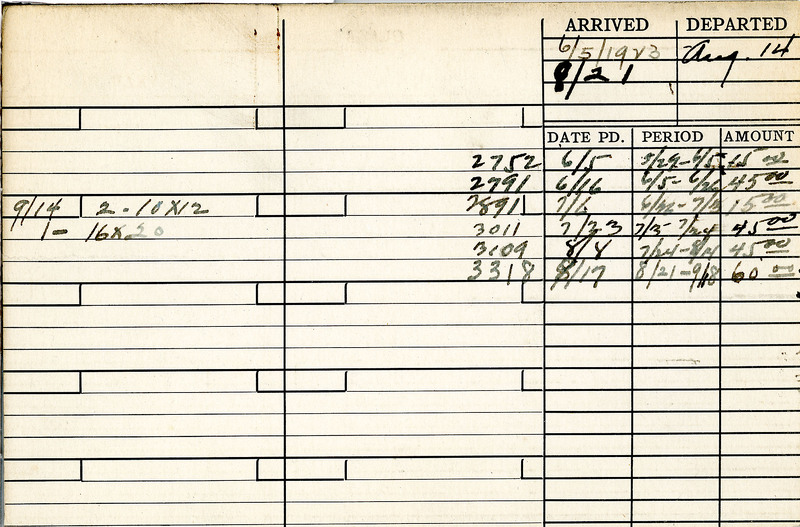 ARRIVED DEPARTED
6/5/1923 Aug. 14
8/21
DATE PD. PERIOD AMOUNT
2752 6/5 5/29-6/5 15 00
2791 6/16 6/5-6/26 45 00
9/14 2-10X12 2891 7/6 6/26-7/3 15 00
1- 16X20 3011 7/23 7/3-7/24 45 00
3109 8/8 7/24-8/14 45 00
3318 8/17 8/21-9/18 60 00